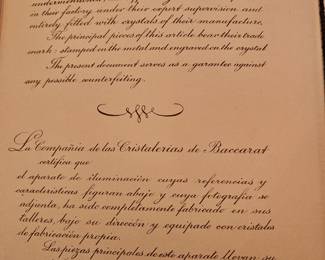 in their factory under their expert supervision and
entirely fitted with crystals of their manufacture.
The principal pieces of this article bear their trade
mark: stamped on the metal and engraved on the crystal
The present document serves as a garantee against
any possible counterfeiting.
La Compañia de las Cristalerias de Baccarat
certifica que
el aparato de iluminación cuyas referencias y
características figuran abajo y cuya fotografía se
adjunta, ha sido completamente fabricado en sus
talleres, bajo su dirección y equipado con cristales
de fabricación propia.
Las piezas principales de este aparato llevan su